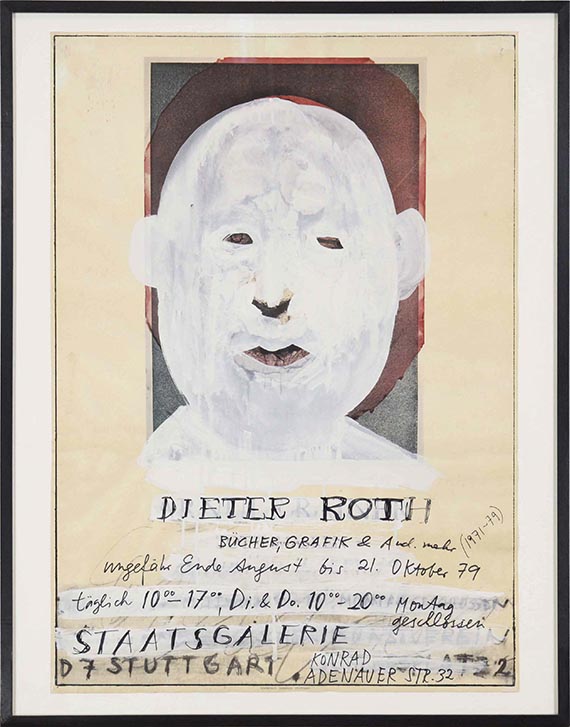 DIETER ROTH
BÜCHER, GRAFIK & And. mehr (1971-79)
ungefähr Ende August bis 21. Oktober 79
täglich 10⁰⁰-17⁰⁰, Di. & Do. 10⁰⁰-20⁰⁰ Montag
geschlossen
STAATSGALERIE
D 7 STUTTGART . KONRAD
ADENAUER STR. 32